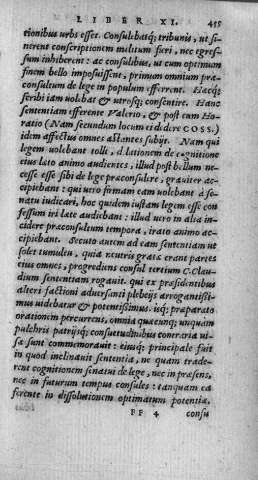 LIBER XI. 455
tionibus urbs esset. Consulebatq; tribunis, ut si-
nerent conscriptionem militum fieri, nec egres-
sum inhiberent: ac consulibus, ut cum optimum
finem bello imposuissent, primum omnium præ-
consultum de lege in populum efferrent. Hacq;
scribi iam uolebat & utrosq; consentire. Hanc
sententiam efferente Valerio, & post eum Ho-
ratio (Nam secundum locum ei dedere COSS.)
idem affectus omnes astantes subijt. Nam qui
legem uolebant tolli, dilationem de cognitione
eius lato animo audientes, illud post bellum ne-
cesse esse sibi de lege præconsulere, grauiter ac-
cipiebant: qui uero firmam eam uolebant à se-
natu iudicari, hoc quidem iustam legem esse con
fessum iri late audiebant: illud uero in alia in-
cidere præconsultum tempora, irato animo ac-
cipiebant. Secuto autem ad eam sententiam ut
solet tumultu, quia neutris grata erant partes
eius omnes, progrediens consul tertium C. Clau
dium sententiam rogauit. qui ex præsidentibus
alteri factioni aduersanti plebeijs arrogantissi-
mus uidebatur & potentissimus. isq; præparato
orationem percurrens, omnia quæcunq; unquam
pulchris patrijsq; consuetudinibus contraria ui-
sa sunt commemorauit: eiusq; principale fuit
in quod inclinauit sententia, ne quam trade-
rent cognitionem senatui de lege, nec in præsens,
nec in futurum tempus consules: tanquam ea
ferente in dissolutionem optimatum potentiæ.
FF 4 consu